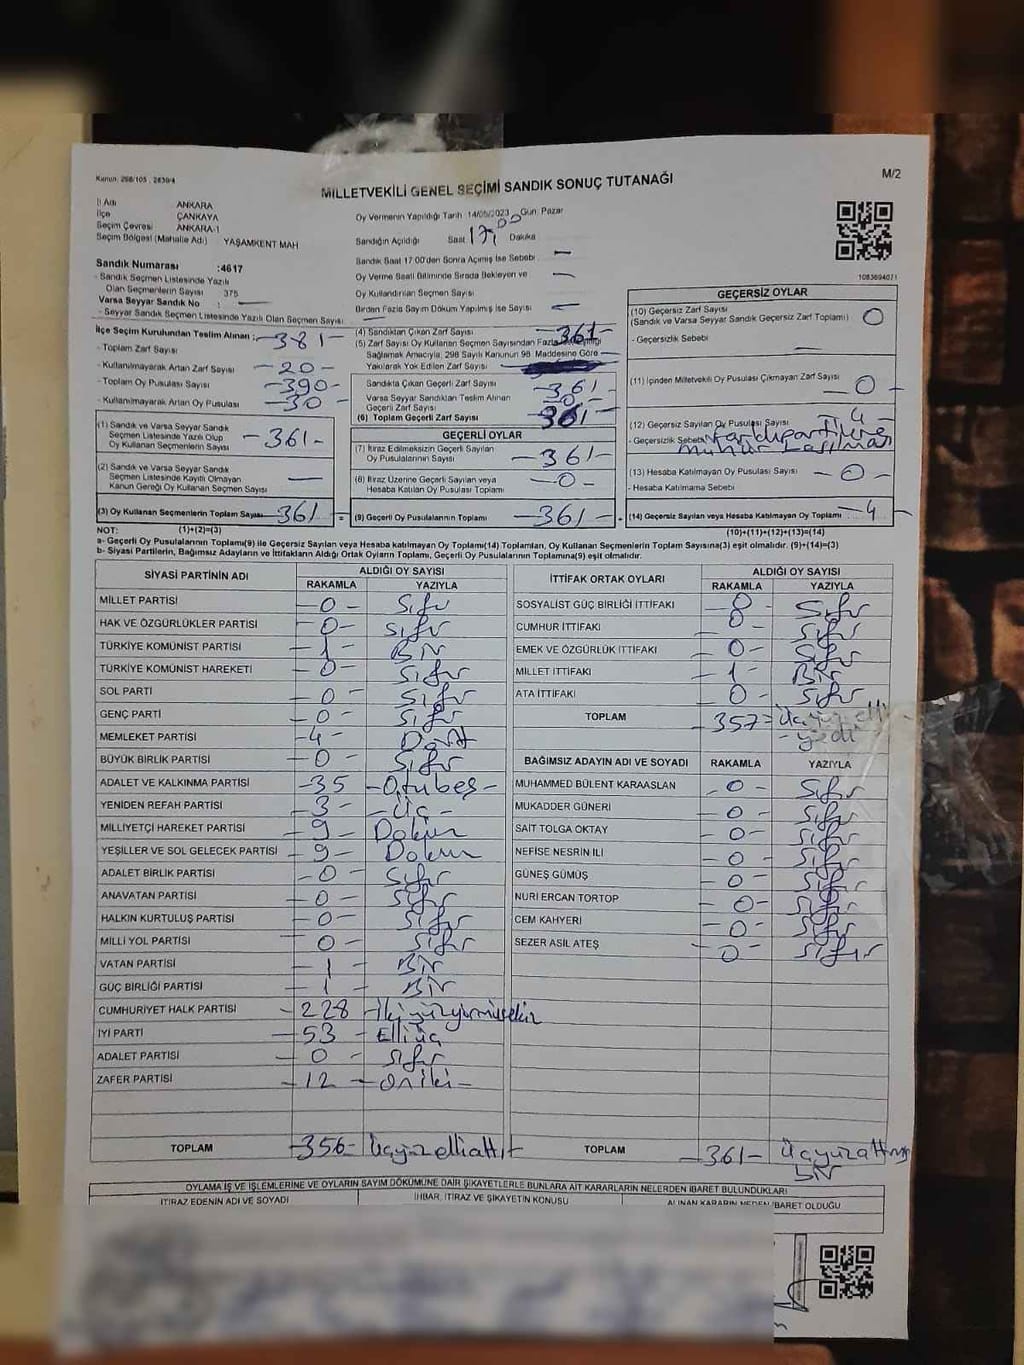 Kanun: 298/105 , 2839/4
MİLLETVEKİLİ GENEL SEÇİMİ SANDIK SONUÇ TUTANAĞI
M/2
İl Adı ANKARA
İlçe ÇANKAYA
Seçim Çevresi ANKARA-1
Seçim Bölgesi (Mahalle Adı) YAŞAMKENT MAH
Sandık Numarası :4617
- Sandık Seçmen Listesinde Yazılı
Olan Seçmenlerin Sayısı 375
Varsa Seyyar Sandık No : —
- Seyyar Sandık Seçmen Listesinde Yazılı Olan Seçmen Sayısı: —
Oy Vermenin Yapıldığı Tarih 14/05/2023 Gün: Pazar
Sandığın Açıldığı Saat 17 Dakika 00
Sandık Saat 17:00'den Sonra Açılmış İse Sebebi —
Oy Verme Saati Bitiminde Sırada Bekleyen ve —
Oy Kullandırılan Seçmen Sayısı
Birden Fazla Sayım Döküm Yapılmış İse Sayısı —
1083694071
İlçe Seçim Kurulundan Teslim Alınan ;
- Toplam Zarf Sayısı -381-
- Kullanılmayarak Artan Zarf Sayısı -20-
- Toplam Oy Pusulası Sayısı -390-
- Kullanılmayarak Artan Oy Pusulası -30-
(1) Sandık ve Varsa Seyyar Sandık
Seçmen Listesinde Yazılı Olup
Oy Kullanan Seçmenlerin Sayısı -361-
(2) Sandık ve Varsa Seyyar Sandık
Seçmen Listesinde Kayıtlı Olmayan
Kanun Gereği Oy Kullanan Seçmen Sayısı —
(3) Oy Kullanan Seçmenlerin Toplam Sayısı -361-
(4) Sandıktan Çıkan Zarf Sayısı -361-
(5) Zarf Sayısı Oy Kullanan Seçmen Sayısından Fazla
Sağlamak Amacıyla, 298 Sayılı Kanunun 98. Maddesine Göre
Yakılarak Yok Edilen Zarf Sayısı
Sandıkta Çıkan Geçerli Zarf Sayısı -361-
Varsa Seyyar Sandıktan Teslim Alınan
Geçerli Zarf Sayısı -0-
(6) Toplam Geçerli Zarf Sayısı 361-
GEÇERLİ OYLAR
(7) İtiraz Edilmeksizin Geçerli Sayılan
Oy Pusulalarının Sayısı -361-
(8) İtiraz Üzerine Geçerli Sayılan veya
Hesaba Katılan Oy Pusulası Toplamı -0-
(9) Geçerli Oy Pusulalarının Toplamı -361-
GEÇERSİZ OYLAR
(10) Geçersiz Zarf Sayısı
(Sandık ve Varsa Seyyar Sandık Geçersiz Zarf Toplamı) 0
- Geçersizlik Sebebi —
(11) İçinden Milletvekili Oy Pusulası Çıkmayan Zarf Sayısı -0-
(12) Geçersiz Sayılan Oy Pusulası Sayısı -4-
- Geçersizlik Sebebi Farklı partilere
mühür basılması
(13) Hesaba Katılmayan Oy Pusulası Sayısı -0-
- Hesaba Katılmama Sebebi
(14) Geçersiz Sayılan veya Hesaba Katılmayan Oy Toplamı -4-
NOT: (1)+(2)=(3) (10)+(11)+(12)+(13)=(14)
a- Geçerli Oy Pusulalarının Toplamı(9) ile Geçersiz Sayılan veya Hesaba katılmayan Oy Toplamı(14) Toplamları, Oy Kullanan Seçmenlerin Toplam Sayısına(3) eşit olmalıdır. (9)+(14)=(3)
b- Siyasi Partilerin, Bağımsız Adayların ve İttifakların Aldığı Ortak Oyların Toplamı, Geçerli Oy Pusulalarının Toplamına(9) eşit olmalıdır.
SİYASİ PARTİNİN ADI ALDIĞI OY SAYISI
RAKAMLA YAZIYLA
MİLLET PARTİSİ -0- Sıfır
HAK VE ÖZGÜRLÜKLER PARTİSİ -0- Sıfır
TÜRKİYE KOMÜNİST PARTİSİ -1- Bir
TÜRKİYE KOMÜNİST HAREKETİ -0- Sıfır
SOL PARTİ -0- Sıfır
GENÇ PARTİ -0- Sıfır
MEMLEKET PARTİSİ -4- Dört
BÜYÜK BİRLİK PARTİSİ -0- Sıfır
ADALET VE KALKINMA PARTİSİ -35 -Otuzbeş-
YENİDEN REFAH PARTİSİ -3- -Üç-
MİLLİYETÇİ HAREKET PARTİSİ -9- Dokuz
YEŞİLLER VE SOL GELECEK PARTİSİ -9- Dokuz
ADALET BİRLİK PARTİSİ -0- Sıfır
ANAVATAN PARTİSİ -0- Sıfır
HALKIN KURTULUŞ PARTİSİ -0- Sıfır
MİLLİ YOL PARTİSİ -0- Sıfır
VATAN PARTİSİ -1- Bir
GÜÇ BİRLİĞİ PARTİSİ -1- Bir
CUMHURİYET HALK PARTİSİ -228 -İkiyüzyirmisekiz
İYİ PARTİ -53 -Elliüç
ADALET PARTİSİ -0- Sıfır
ZAFER PARTİSİ -12 -Oniki-
TOPLAM -356- Üçyüzellialtı-
İTTİFAK ORTAK OYLARI ALDIĞI OY SAYISI
RAKAMLA YAZIYLA
SOSYALİST GÜÇ BİRLİĞİ İTTİFAKI -0- Sıfır
CUMHUR İTTİFAKI -0- Sıfır
EMEK VE ÖZGÜRLÜK İTTİFAKI -0- Sıfır
MİLLET İTTİFAKI -1- Bir
ATA İTTİFAKI -0- Sıfır
TOPLAM -357- Üçyüzelli
-yedi-
BAĞIMSIZ ADAYIN ADI VE SOYADI RAKAMLA YAZIYLA
MUHAMMED BÜLENT KARAASLAN -0- Sıfır
MUKADDER GÜNERİ -0- Sıfır
SAİT TOLGA OKTAY -0- Sıfır
NEFİSE NESRİN İLİ -0- Sıfır
GÜNEŞ GÜMÜŞ -0- Sıfır
NURİ ERCAN TORTOP -0- Sıfır
CEM KAHYERİ -0- Sıfır
SEZER ASİL ATEŞ -0- Sıfır
TOPLAM -361- Üçyüzaltmış
bir
OYLAMA İŞ VE İŞLEMLERİNE VE OYLARIN SAYIM DÖKÜMÜNE DAİR ŞİKAYETLERLE BUNLARA AİT KARARLARIN NELERDEN İBARET BULUNDUKLARI
İTİRAZ EDENİN ADI VE SOYADI İHBAR, İTİRAZ VE ŞİKAYETİN KONUSU ALINAN KARARIN NEDEN İBARET OLDUĞU